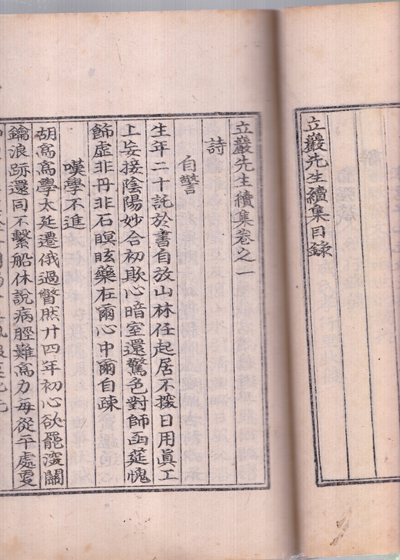 立巖先生續集目錄
立巖先生續集卷之一
詩
自警
生年二十託於書自放山林任起居不撥日用眞工
上妄接陰陽妙合初欺心暗室還驚色對師函筵愧
飾虛非丹非石瞑眩藥在爾心中爾自疎
嘆學不進
胡高高學太廷遷俄過瞥然廿四年初心欲罷濱關
鑰浪跡還同不繫船休說病脛難高力每從平處